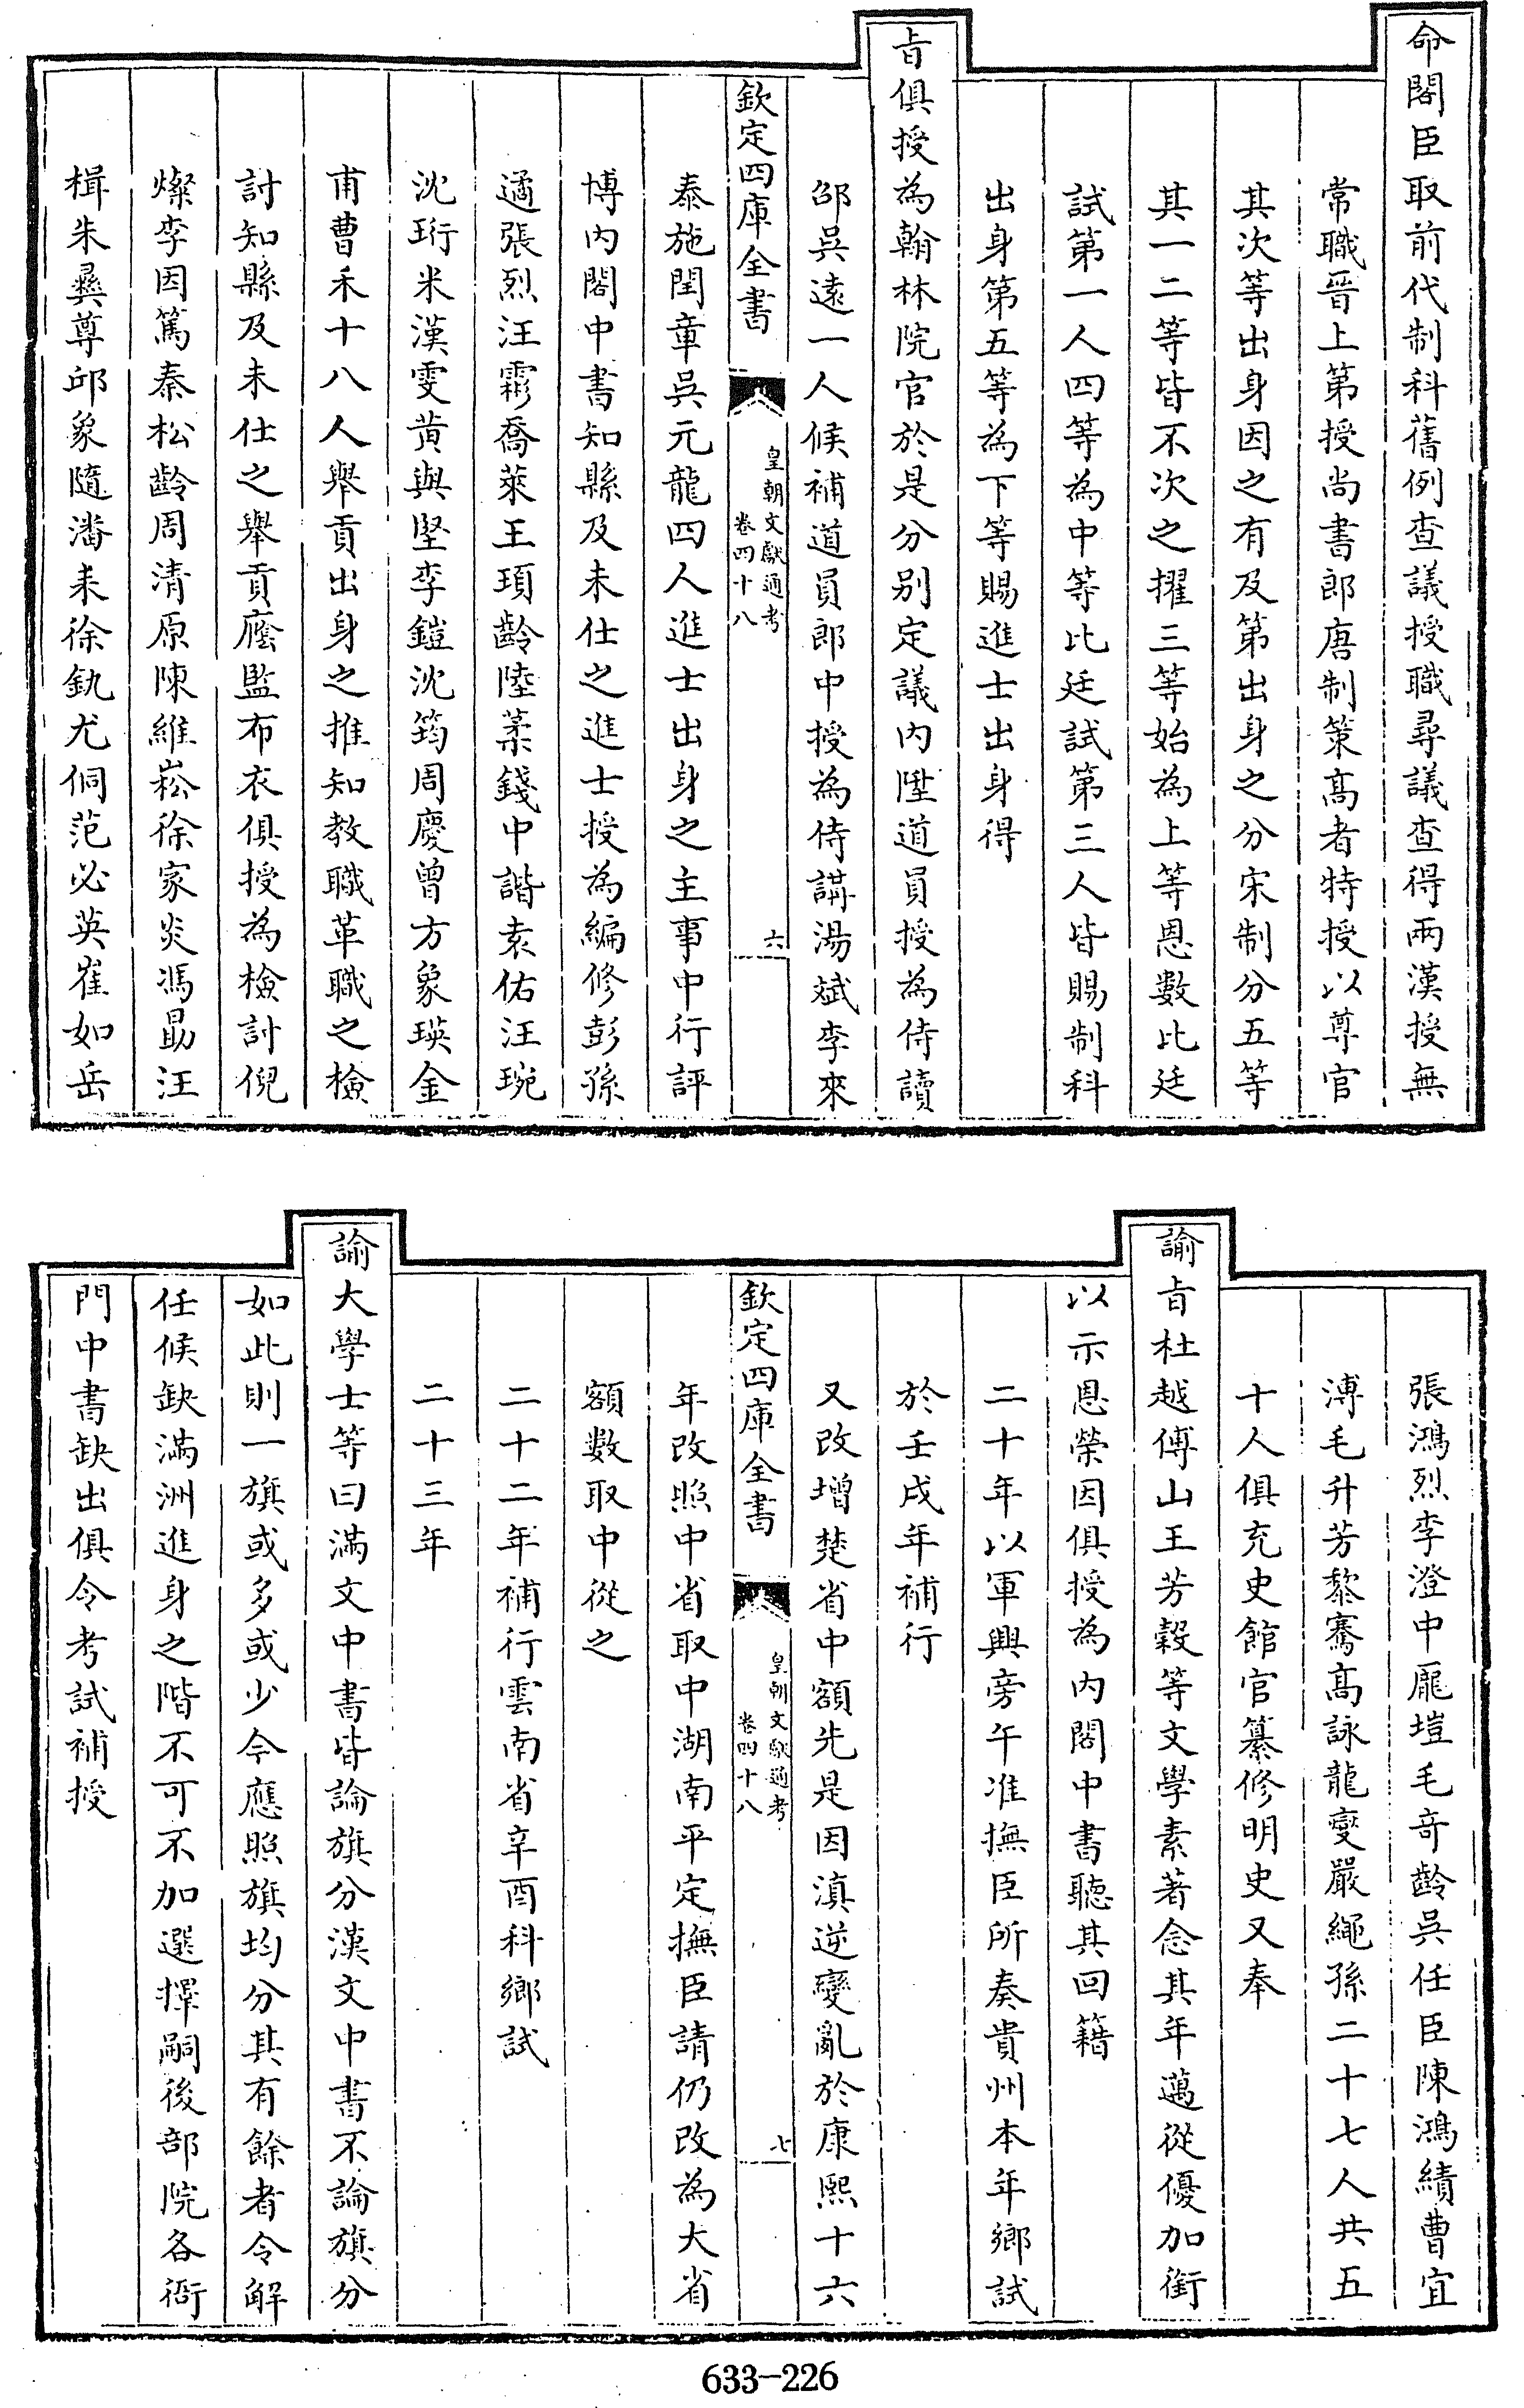 命閣臣取前代制科舊例查議授職尋議查得兩漢授無
常職晉上第授尚書郎唐制策高者特授以尊官
其次等出身因之有及第出身之分宋制分五等
其一二等皆不次之擢三等始為上等恩數比廷
試第一人四等為中等比廷試第三人皆賜制科
出身第五等為下等賜進士出身得
㫖俱授為翰林院官於是分别定議内陞道員授為侍讀
邵吳遠一人候補道員郎中授為侍講湯斌李來
欽定四庫全書
皇朝文獻通考
卷四十八
六
泰施閏章吳元龍四人進士出身之主事中行評
博内閣中書知縣及未仕之進士授為編修彭孫
遹張烈汪霦喬萊王頊齡陸葇錢中諧袁佑汪琬
沈珩米漢雯黄與堅李鎧沈筠周慶曾方象瑛金
甫曹禾十八人舉貢出身之推知教職革職之檢
討知縣及未仕之舉貢廕監布衣俱授為檢討倪
燦李因篤秦松齡周清原陳維崧徐家炎馮勗汪
楫朱彞尊邱象隨潘耒徐釚尤侗范必英崔如岳
張鴻烈李澄中龐塏毛奇齡吳任臣陳鴻績曹宜
溥毛升芳黎騫高詠龍燮嚴繩孫二十七人共五
十人俱充史館官纂修明史又奉
諭㫖杜越傅山王方榖等文學素著念其年邁從優加銜
以示恩榮因俱授為内閣中書聽其回籍
二十年以軍興旁午准撫臣所奏貴州本年鄉試
於壬戌年補行
又改增楚省中額先是因滇逆變亂於康熙十六
欽定四庫全書
皇朝文獻通考
卷四十八
七
年改照中省取中湖南平定撫臣請仍改為大省
額數取中從之
二十二年補行雲南省辛酉科鄉試
二十三年
諭大學士等曰滿文中書皆論旗分漢文中書不論旗分
如此則一旗或多或少今應照旗均分其有餘者令解
任候缺滿洲進身之階不可不加選擇嗣後部院各衙
門中書缺出俱令考試補授
633-226